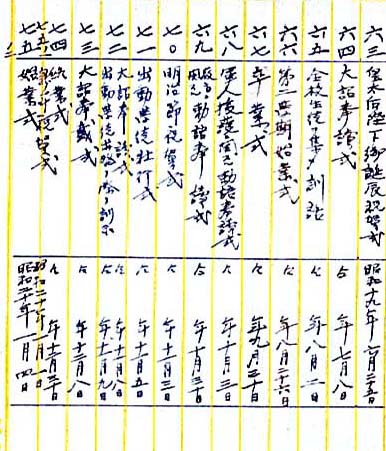 六三 皇太后陛下御誕辰祝賀式 昭和十九年六月二十五日
六四 大詔奉読式 〃 年七月八日
六五 全校生徒ヲ集メ訓話 〃 年八月一日
六六 第二学期始業式 〃 年八月二十六日
六七 卒業式 〃 年九月三十日
六八 軍人援護ニ関スル勅語奉読式 〃 年十月三日
六九 教育ニ関スル勅語奉読式 〃 年十月三十日
七〇 明治節祝賀式 〃 年十一月三日
七一 出動学徒壮行式 〃 年十一月五日
大詔奉読式 〃 年十一月八日
七二 出動学徒出発ノ際ノ訓示 〃 年十一月九日
七三 大詔奉戴式 〃 年十二月八日
七四 終業式 〃 年十二月
祝賀式 昭和二十年一月一日
七五 始業式 昭和二十年一月四日